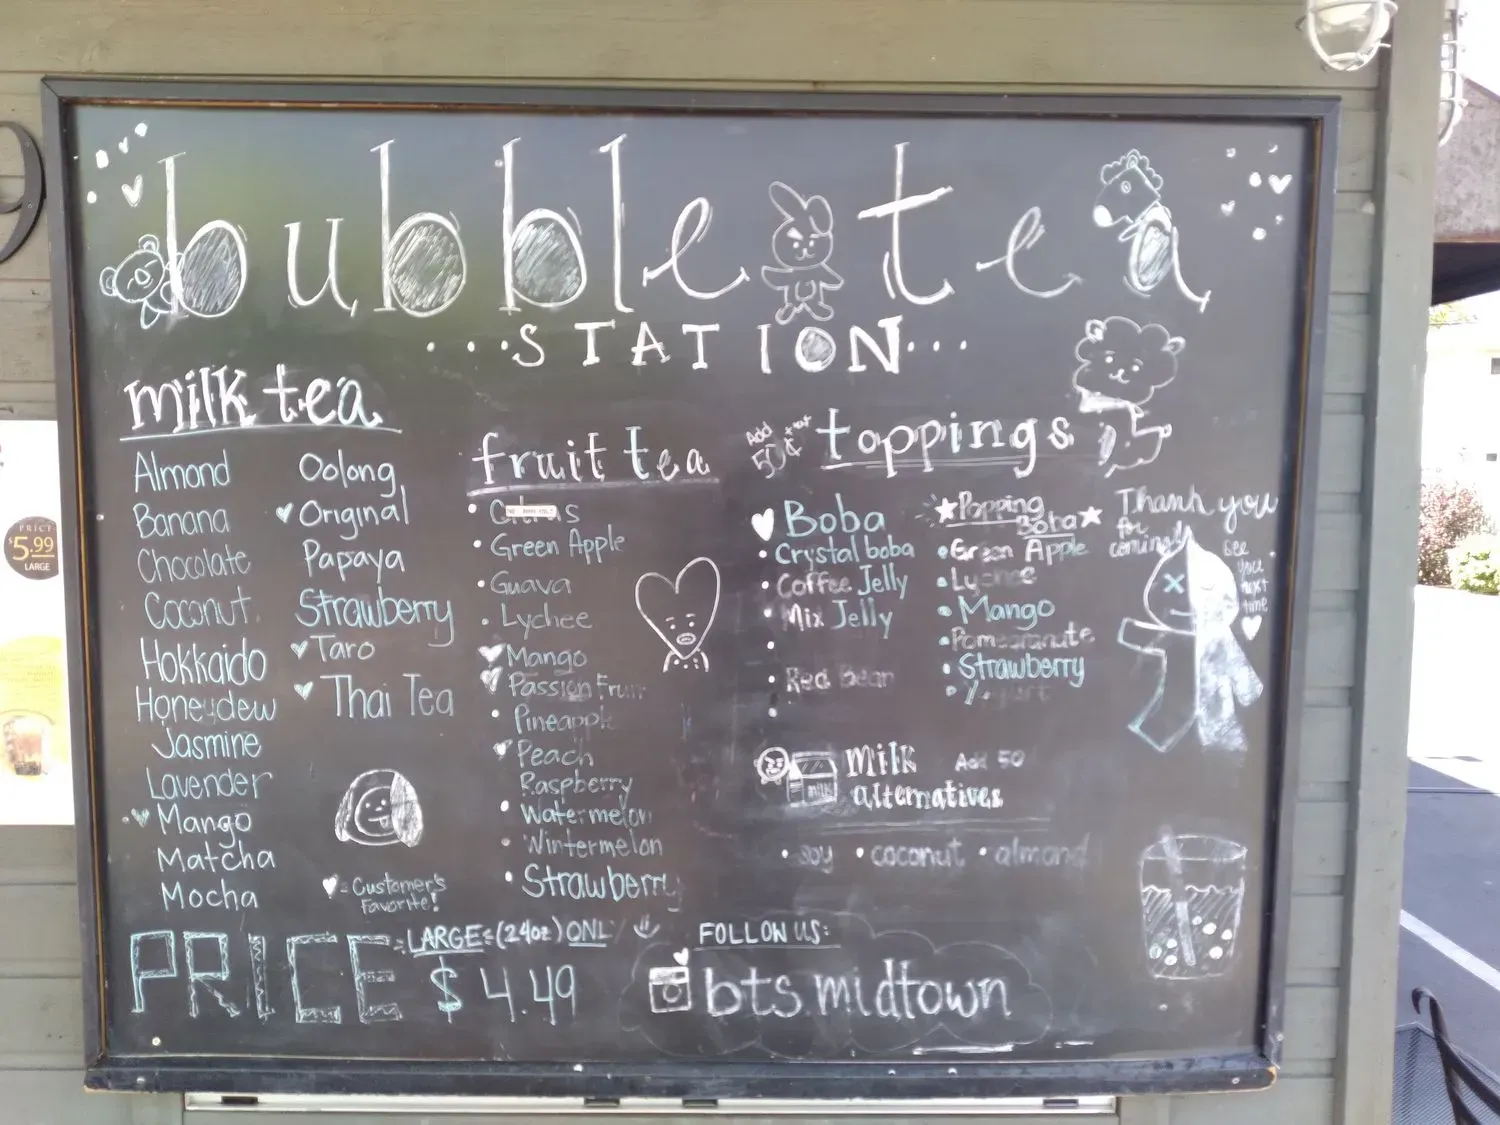 bubble tea
...STATION...
milk tea
Almond
Banana
Chocolate
Coconut
Hokkaido
Honeydew
Jasmine
Lavender
Mango
Matcha
Mocha
Oolong
Original
Papaya
Strawberry
Taro
Thai Tea
= Customer's
Favorite!
fruit tea
Citrus
Green Apple
Guava
Lychee
Mango
Passion Fruit
Pineapple
Peach
Raspberry
Watermelon
Wintermelon
Strawberry
Add
50¢
toppings
Boba
Crystal boba
Coffee Jelly
Mix Jelly
Red bean
Popping
Boba
Green Apple
Lychee
Mango
Pomegranate
Strawberry
Thank you
for
coming!
See
you
next
time
milk
Milk
alternatives
Add 50
soy
coconut
almond
PRICE
LARGE (24oz) ONL
$4.49
FOLLOW US:
bts.midtown
PRICE
$5.99
LARGE